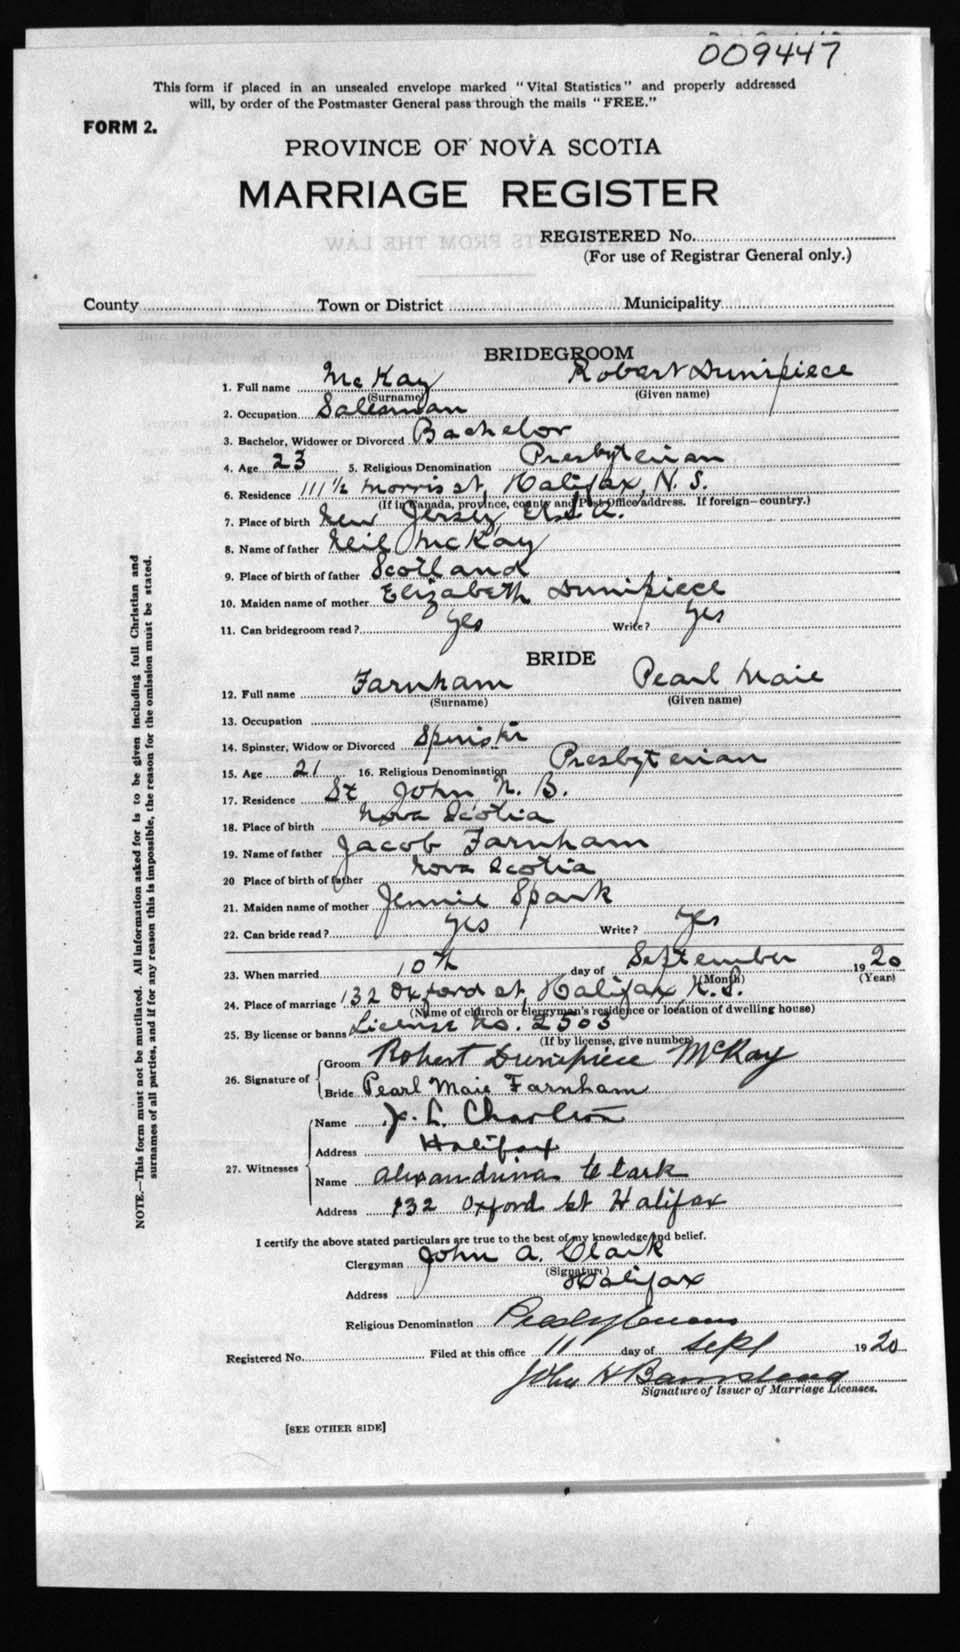 009447
This form if placed in an unsealed envelope marked "Vital Statistics" and properly addressed
will, by order of the Postmaster General pass through the mails "FREE."
FORM 2.
PROVINCE OF NOVA SCOTIA
MARRIAGE REGISTER
REGISTERED No.
(For use of Registrar General only.)
County Town or District Municipality
BRIDEGROOM
1. Full name McKay Robert Dunipiece
(Surname) (Given name)
2. Occupation Salesman
3. Bachelor, Widower or Divorced Bachelor
4. Age 23 5. Religious Denomination Presbyterian
6. Residence 111 1/2 Morris st, Halifax, N. S.
(If in Canada, province, county and Post Office address. If foreign—country.)
7. Place of birth New Jersey U.S.A.
8. Name of father Neil McKay
9. Place of birth of father Scotland
10. Maiden name of mother Elizabeth Dunipiece
11. Can bridegroom read? Yes Write? Yes
BRIDE
12. Full name Farnham Pearl Maie
(Surname) (Given name)
13. Occupation
14. Spinster, Widow or Divorced Spinster
15. Age 21 16. Religious Denomination Presbyterian
17. Residence St John N. B.
18. Place of birth Nova Scotia
19. Name of father Jacob Farnham
20 Place of birth of father Nova Scotia
21. Maiden name of mother Jennie Spark
22. Can bride read? Yes Write? Yes
23. When married 10th day of September 1920
(Month) (Year)
24. Place of marriage 132 Oxford st, Halifax, N.S.
(Name of church or clergyman's residence or location of dwelling house)
25. By license or banns License No. 2503
(If by license, give number)
26. Signature of Groom Robert Dunipiece McKay
Bride Pearl Maie Farnham
27. Witnesses Name J. L. Charlton
Address Halifax
Name Alexandrina Clark
Address 132 Oxford st Halifax
I certify the above stated particulars are true to the best of my knowledge and belief.
Clergyman John A. Clark
(Signature)
Address Halifax
Religious Denomination Presbyterian
Registered No. Filed at this office 11 day of Sept 1920
John H Barnstead
Signature of Issuer of Marriage Licenses.
[SEE OTHER SIDE]
NOTE.—This form must not be mutilated. All information asked for is to be given including full Christian and
surnames of all parties, and if for any reason this is impossible, the reason for the omission must be stated.